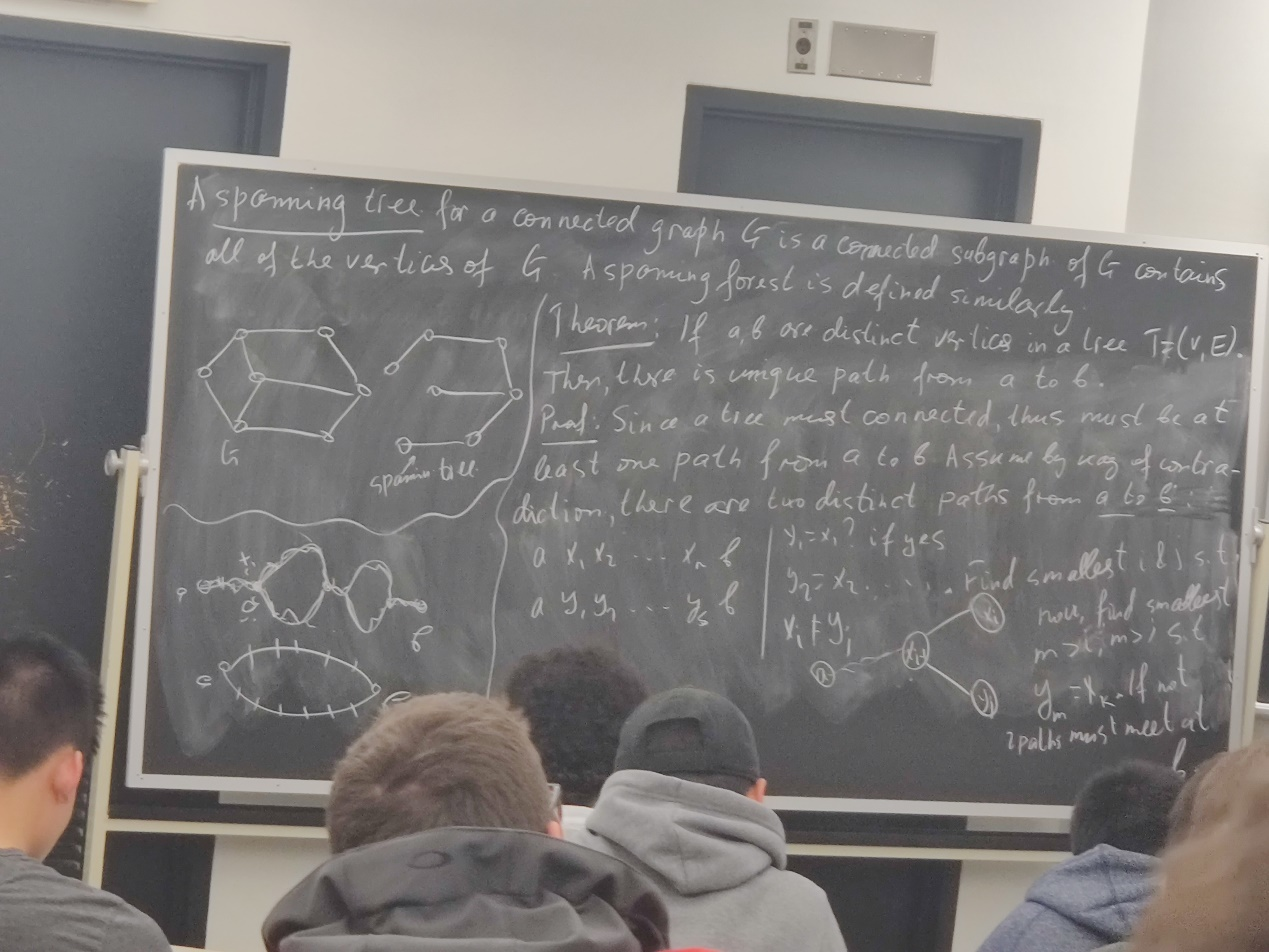 A spanning tree for a connected graph G is a connected subgraph of G contains
all of the vertices of G. A spanning forest is defined similarly.
G
spannin tree
Theorem: If a, b are distinct vertices in a tree T=(V,E).
Then, there is unique path from a to b.
Proof: Since a tree must connected, thus must be at
least one path from a to b Assume by way of contra-
diction, there are two distinct paths from a to b.
a x₁ x₂ ... xₙ b
a y₁ y₂ ... yₛ b
y₁=x₁? if yes
y₂=x₂ ...... Find smallest i & j s.t
xᵢ ≠ yⱼ
now, find smallest
m>i, m>j s.t
yₘ = xₖ. If not
2 paths must meet at
b
a
b